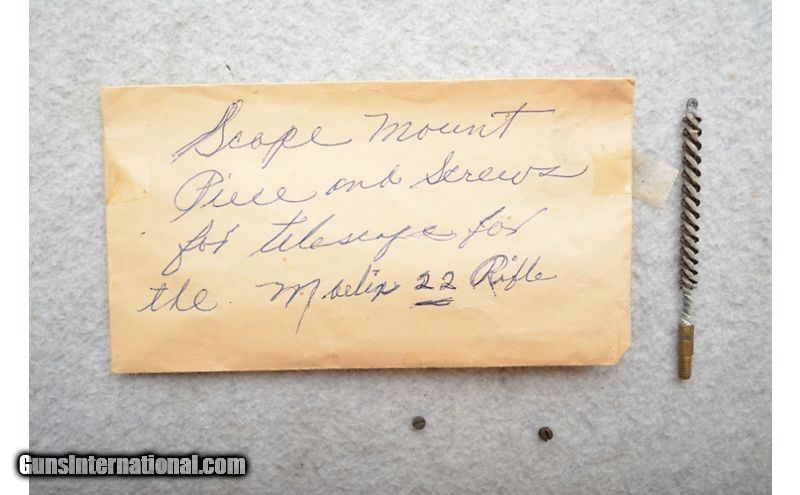 Scope Mount
Piece and Screws
for telescope for
the Marlin 22 Rifle
GunsInternational.com